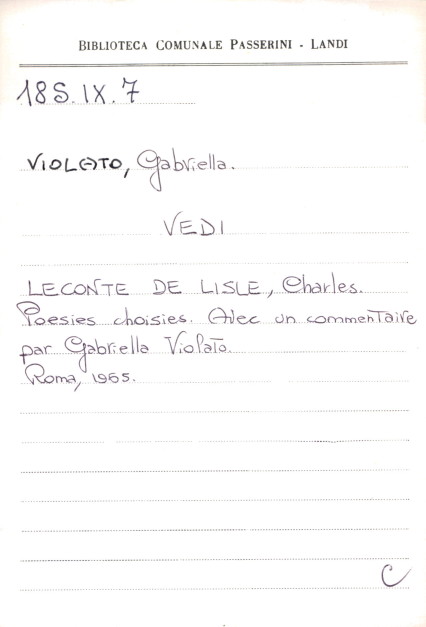 BIBLIOTECA COMUNALE PASSERINI - LANDI
18S.IX.7
VIOLATO, Gabriella.
VEDI
LECONTE DE LISLE, Charles.
Poesies choisies. Avec un commentaire
par Gabriella Violato.
Roma, 1965.
C